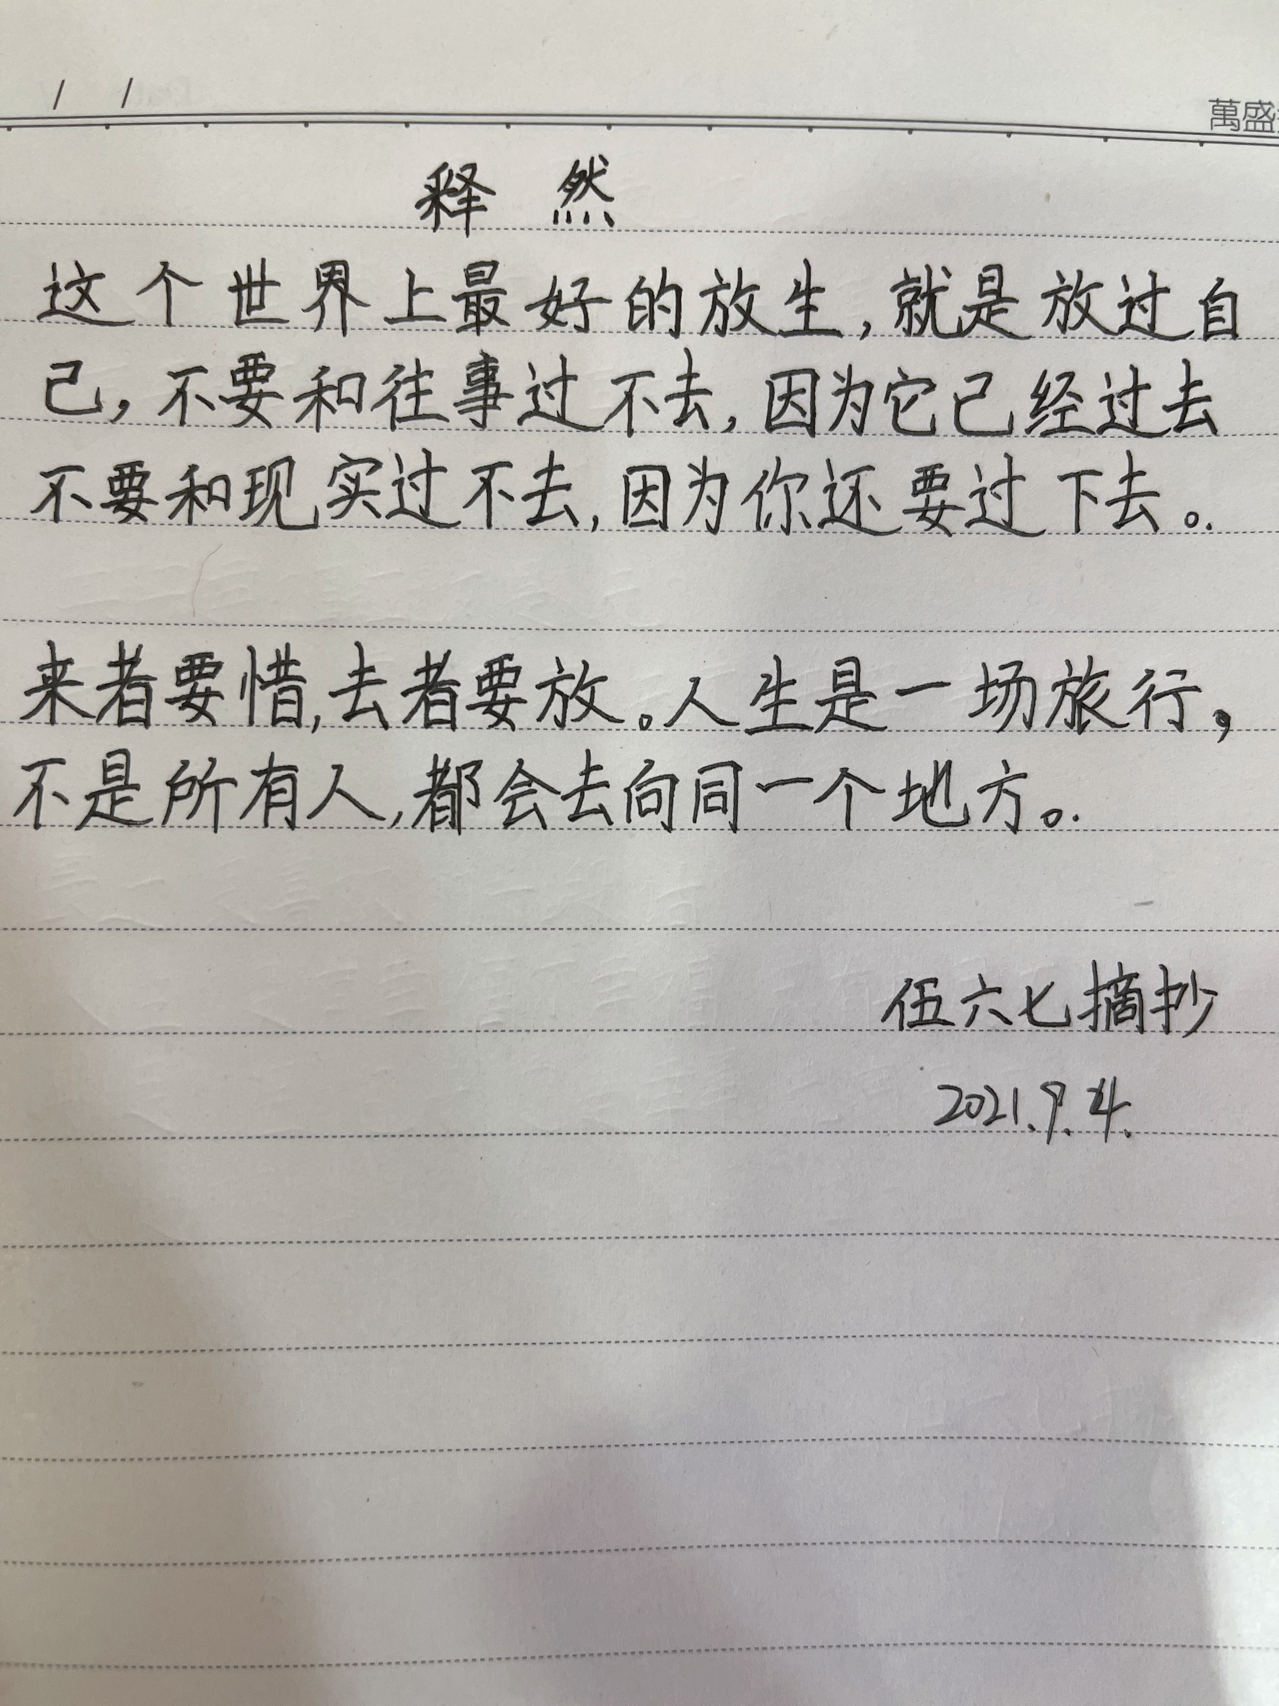 / /
萬盛
释 然
这个世界上最好的放生,就是放过自
己,不要和往事过不去,因为它已经过去
不要和现实过不去,因为你还要过下去。.
来者要惜,去者要放。人生是一场旅行,
不是所有人,都会去向同一个地方。.
伍六七摘抄
2021.9.4.